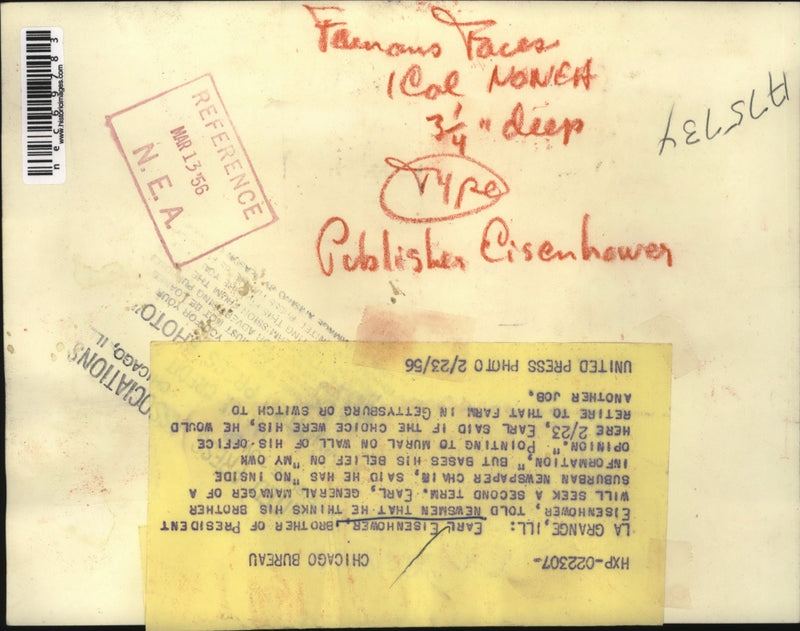 Famous Faces
1 Col NONEA
3 1/4" deep
Type
Publisher Eisenhower
A75734
nec69783
www.historicimages.com
REFERENCE
MAR 13 '56
N. E. A.
SOCIATIONS
PHOTO
CHICAGO, IL
HXP-022307- CHICAGO BUREAU
LA GRANGE, ILL: EARL EISENHOWER, BROTHER OF PRESIDENT
EISENHOWER, TOLD NEWSMEN THAT HE THINKS HIS BROTHER
WILL SEEK A SECOND TERM. EARL, GENERAL MANAGER OF A
SUBURBAN NEWSPAPER CHAIN, SAID HE HAS "NO INSIDE
INFORMATION," BUT BASES HIS BELIEF ON "MY OWN
OPINION." POINTING TO MURAL ON WALL OF HIS OFFICE
HERE 2/23, EARL SAID IF THE CHOICE WERE HIS, HE WOULD
RETIRE TO THAT FARM IN GETTYSBURG OR SWITCH TO
ANOTHER JOB.
UNITED PRESS PHOTO 2/23/56